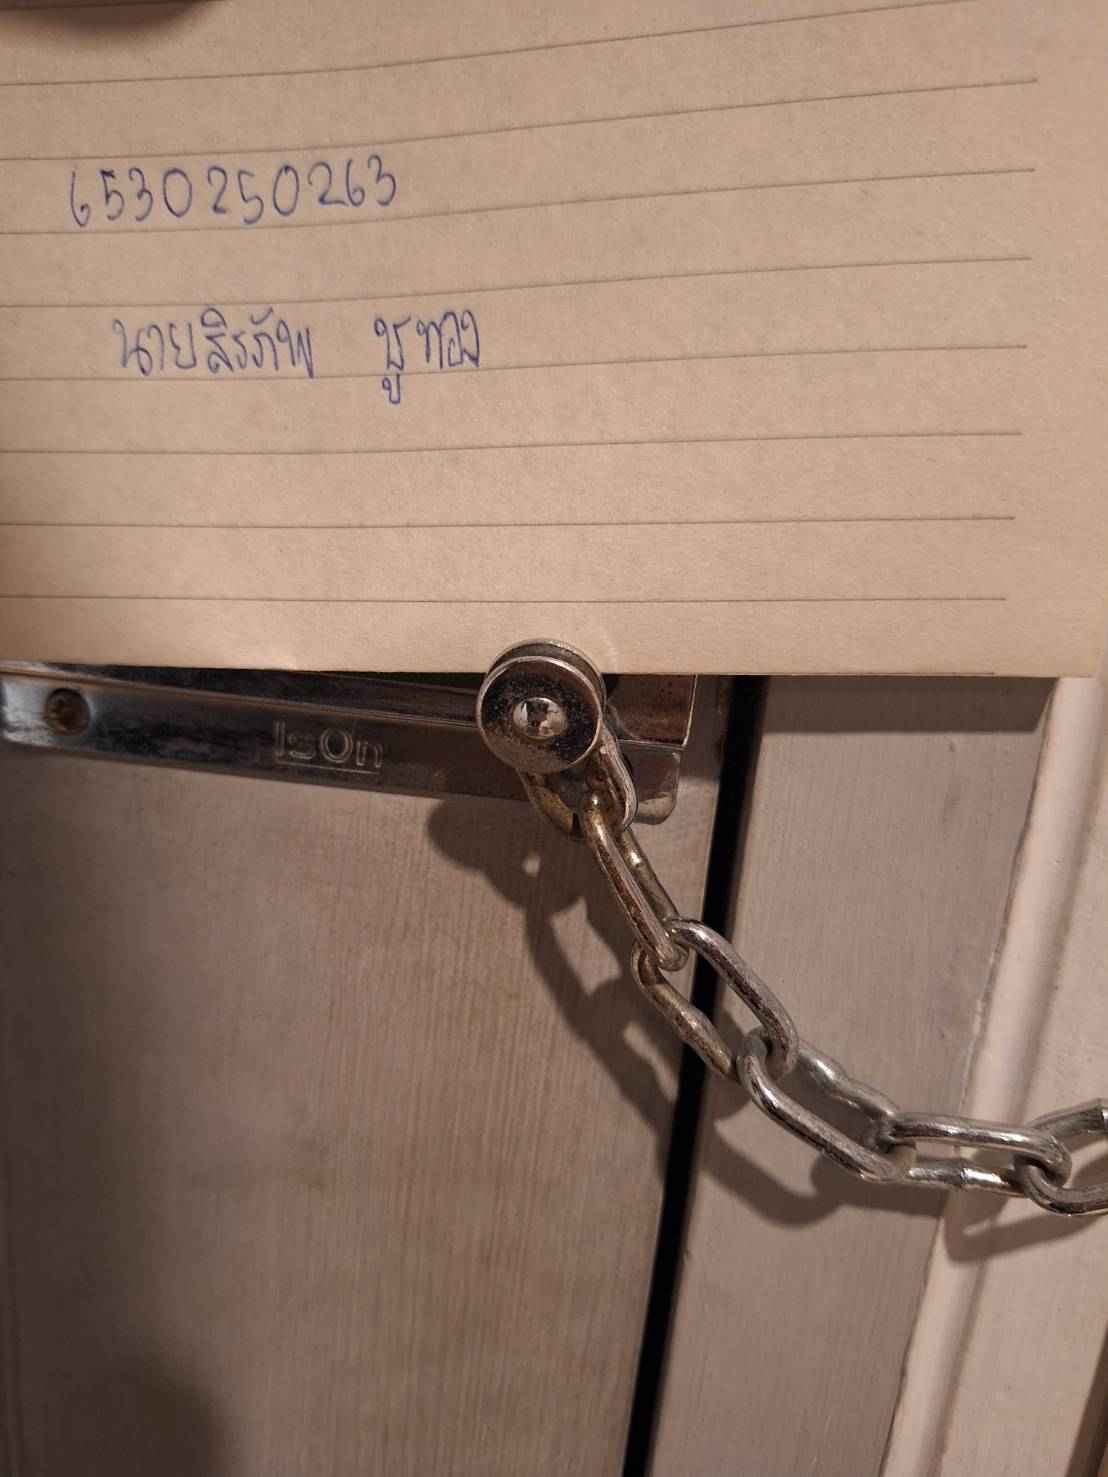 6530250263
นายสิรภัพ ชูทอง
IsOn